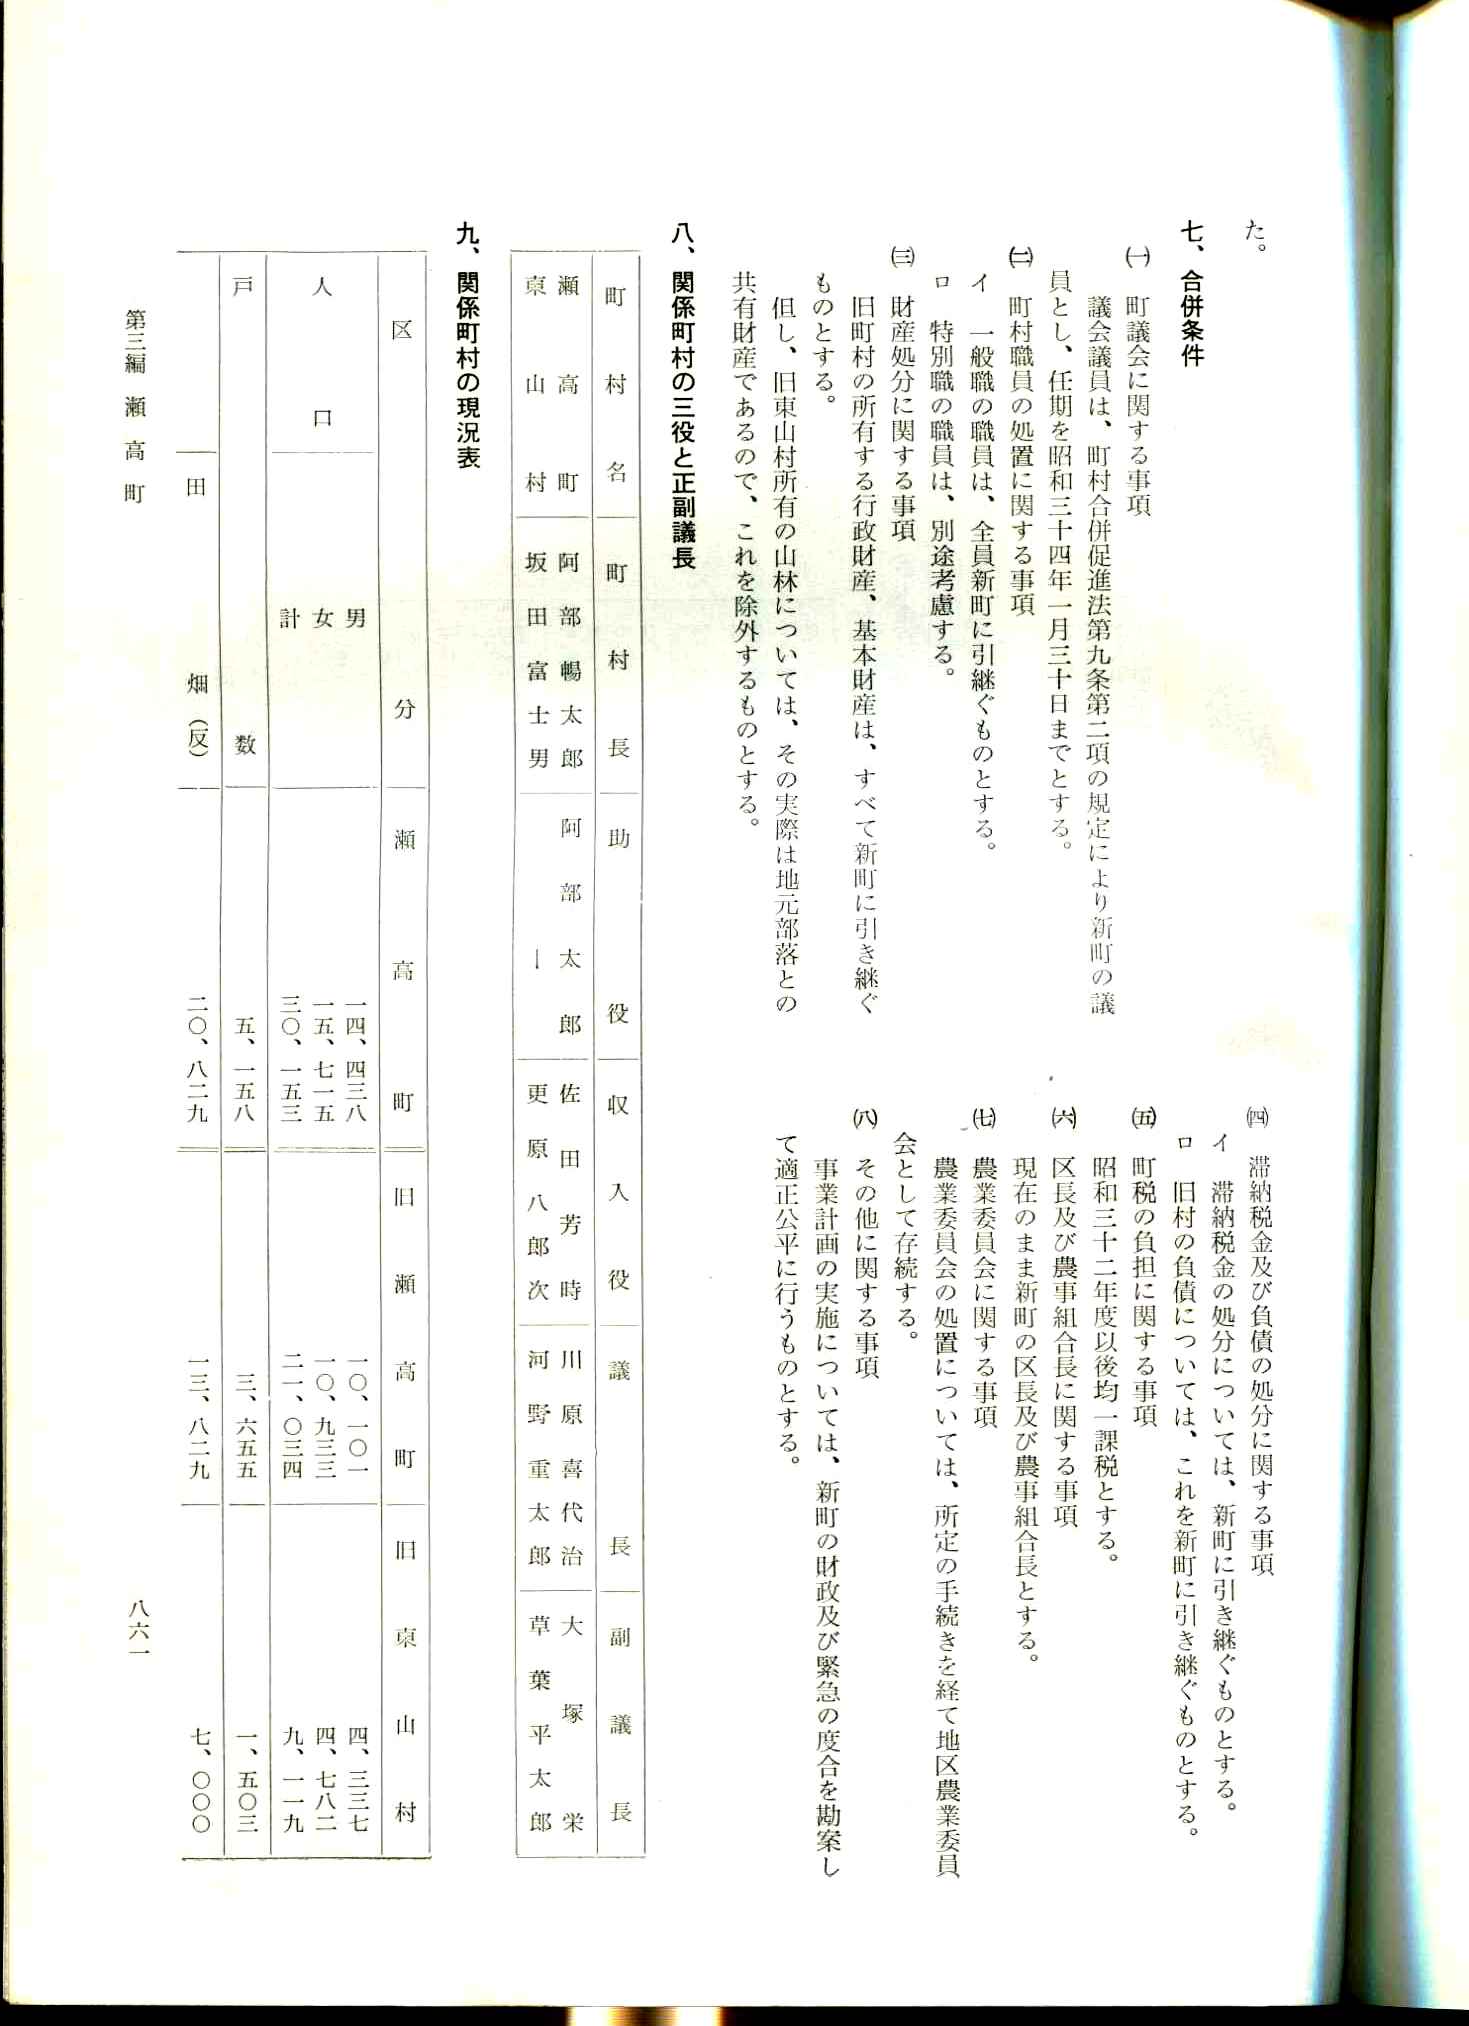 た。
七、合併条件
㈠　町議会に関する事項
議会議員は、町村合併促進法第九条第二項の規定により新町の議
員とし、任期を昭和三十四年一月三十日までとする。
㈡　町村職員の処置に関する事項
イ　一般職の職員は、全員新町に引継ぐものとする。
ロ　特別職の職員は、別途考慮する。
㈢　財産処分に関する事項
旧町村の所有する行政財産、基本財産は、すべて新町に引き継ぐ
ものとする。
但し、旧東山村所有の山林については、その実際は地元部落との
共有財産であるので、これを除外するものとする。
㈣　滞納税金及び負債の処分に関する事項
イ　滞納税金の処分については、新町に引き継ぐものとする。
ロ　旧村の負債については、これを新町に引き継ぐものとする。
㈤　町税の負担に関する事項
昭和三十二年度以後均一課税とする。
㈥　区長及び農事組合長に関する事項
現在のまま新町の区長及び農事組合長とする。
㈦　農業委員会に関する事項
農業委員会の処置については、所定の手続きを経て地区農業委員
会として存続する。
㈧　その他に関する事項
事業計画の実施については、新町の財政及び緊急の度合を勘案し
て適正公平に行うものとする。
八、関係町村の三役と正副議長
町村名　町村長　助役　収入役　議長　副議長
瀬高町　阿部暢太郎　阿部太郎　佐田芳時　川原喜代治　大塚栄
東山村　坂田富士男　―　更原八郎次　河野重太郎　草葉平太郎
九、関係町村の現況表
区分　瀬高町　旧瀬高町　旧東山村
人口　男　一四、四三八　一〇、一〇一　四、三三七
女　一五、七一五　一〇、九三三　四、七八二
計　三〇、一五三　二一、〇三四　九、一一九
戸数　五、一五八　三、六五五　一、五〇三
田　畑（反）　二〇、八二九　一三、八二九　七、〇〇〇
第三編　瀬高町
八六一